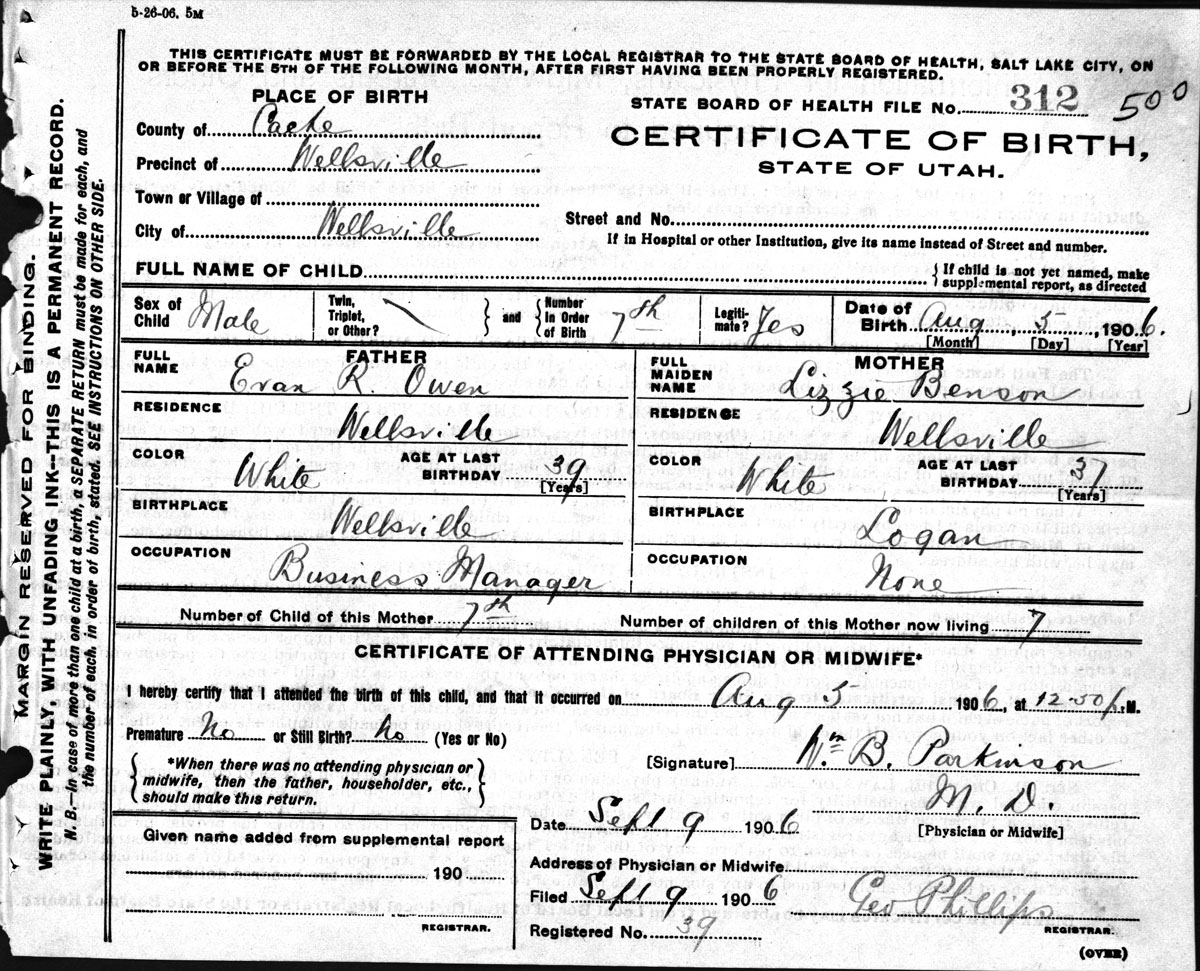 5-26-06. 5M
THIS CERTIFICATE MUST BE FORWARDED BY THE LOCAL REGISTRAR TO THE STATE BOARD OF HEALTH, SALT LAKE CITY, ON
OR BEFORE THE 5TH OF THE FOLLOWING MONTH, AFTER FIRST HAVING BEEN PROPERLY REGISTERED.
PLACE OF BIRTH
County of Cache
Precinct of Wellsville
Town or Village of
City of Wellsville
STATE BOARD OF HEALTH FILE No. 312 500
CERTIFICATE OF BIRTH,
STATE OF UTAH.
Street and No.
If in Hospital or other Institution, give its name instead of Street and number.
FULL NAME OF CHILD
If child is not yet named, make
supplemental report, as directed
Sex of Child Male
Twin, Triplet, or Other? and Number in Order of Birth 7th
Legiti-mate? Yes
Date of Birth Aug, 5, 1906.
[Month] [Day] [Year]
FATHER
FULL NAME Evan R. Owen
RESIDENCE Wellsville
COLOR White AGE AT LAST BIRTHDAY 39
[Years]
BIRTHPLACE Wellsville
OCCUPATION Business Manager
MOTHER
FULL MAIDEN NAME Lizzie Benson
RESIDENCE Wellsville
COLOR White AGE AT LAST BIRTHDAY 37
[Years]
BIRTHPLACE Logan
OCCUPATION None
Number of Child of this Mother 7th Number of children of this Mother now living 7
CERTIFICATE OF ATTENDING PHYSICIAN OR MIDWIFE*
I hereby certify that I attended the birth of this child, and that it occurred on Aug 5 1906, at 12-50 P.M.
Premature No or Still Birth? No (Yes or No)
*When there was no attending physician or
midwife, then the father, householder, etc.,
should make this return.
[Signature] Wm B. Parkinson
M. D.
[Physician or Midwife]
Date Sept 9 1906
Address of Physician or Midwife
Filed Sept 9 1906 Geo Phillips
REGISTRAR.
Registered No. 39
(OVER)
Given name added from supplemental report
190
REGISTRAR.
MARGIN RESERVED FOR BINDING.
WRITE PLAINLY, WITH UNFADING INK--THIS IS A PERMANENT RECORD.
N. B.—In case of more than one child at a birth, a SEPARATE RETURN must be made for each, and
the number of each, in order of birth, stated. SEE INSTRUCTIONS ON OTHER SIDE.